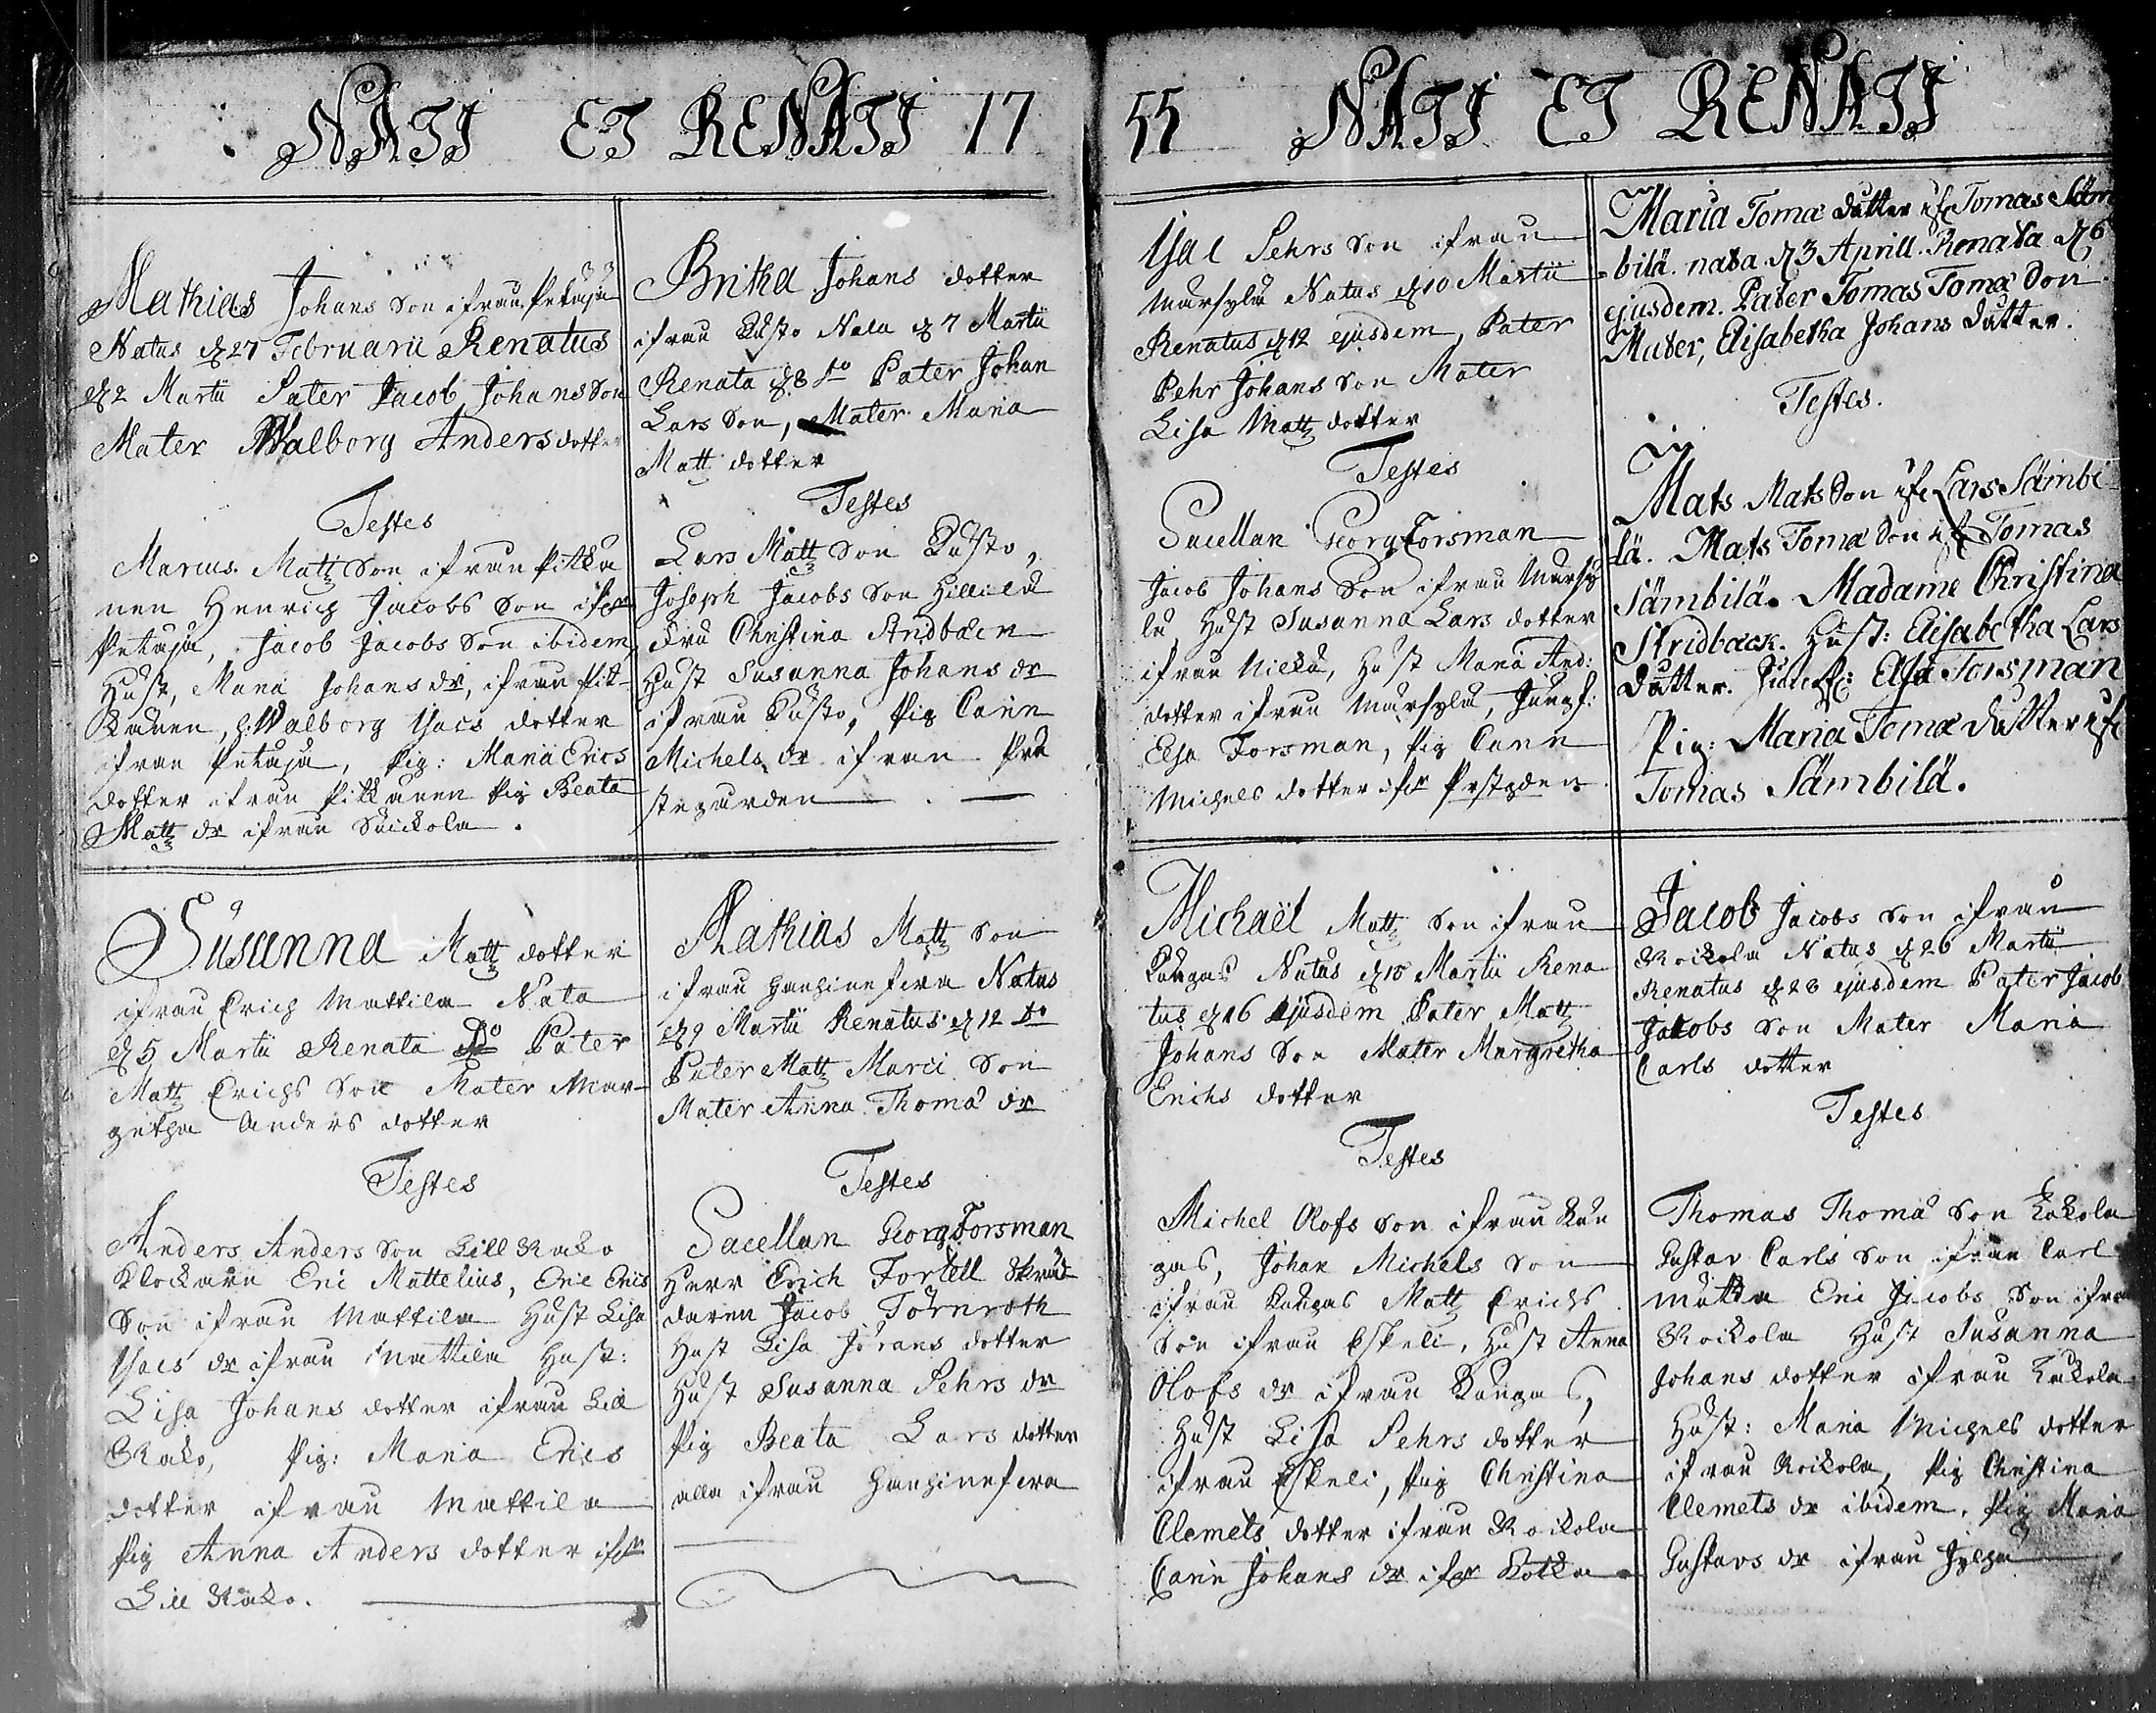 NATI ET RENATI 17
Mathias Johans Son ifrån Petäjä
Natus d 27 Februarii Renatus
d 2 Martii Pater Jacob Johans Son
Mater Walborg Anders dotter
Testes
Marcus Matts Son ifrån Pitkä
nen Henrich Jacobs Son ifrån
Petäjä, Jacob Jacobs Son ibidem
Hust, Maria Johans dr, ifrån Pit-
känen, h: Walborg Isacs dotter
ifrån Petäjä, Pig: Maria Erics
dotter ifrån Pitkänen Pig Beata
Matts dr ifrån
Britha Johans dotter
ifrån Kusto Nata d 7 Martii
Renata d 8 do Pater Johan
Lars Son, Mater Maria
Matts dotter
Testes
Lars Matts Son Kusto,
Joseph Jacobs Son Hillilä
Fru Christina
Hust Susanna Johans dr
ifrån Kusto, Pig Carin
Michels dr ifrån Prä
stegården
Susanna Matts dotter
ifrån Erich Mattila Nata
d 5 Martii Renata Do Pater
Matts Erichs Son Mater Mar-
getha Anders dotter
Testes
Anders Anders Son Lill Rako
Klockarn Eric Mattelius, Eric Erics
Son ifrån Mattila Hust Lisa
Isacs dr ifrån Mattila Hust:
Lisa Johans dotter ifrån Lill
Rako, Pig: Maria Erics
dotter ifrån Mattila
Pig Anna Anders dotter ifr
Lill Rako.
Mathias Matts Son
ifrån Hanhinefva Natus
d 9 Martii Renatus d 12 do
Pater Matts Marci Son
Mater Anna Thomæ dr
Testes
Sacellan Georg Forsman
Herr Erich Forsell Skräd
daren Jacob Törnroth
Hust Lisa Jörans dotter
Hust Susanna Pehrs dr
Pig Beata Lars dotter
alla ifrån Hanhinefva
55 NATI ET RENATI
Isac Pehrs Son ifrån
Mursylä Natus d 10 Martii
Renatus d 12 ejusdem, Pater
Pehr Johans Son Mater
Lisa Matts dotter
Testes
Sacellan Georg Forsman
Jacob Johans Son ifrån Mursy
lä Hust Susanna Lars dotter
ifrån Nickä, Hust Maria And:
dotter ifrån Mursylä, Jungf:
Elsa Forsman, Pig Carin
Michels dotter ifr Prstgden
Maria Tomæ dutter ifr Tomas Säm
bilä. nata d 3 Aprill. Renata d 6
ejusdem. Pater Tomas Tomæ Son
Mater, Elisabetha Johans dutter.
Testes.
Mats Mats Son ifr Lars Sämbi
lä. Mats Tomæ Son ifr Tomas
Sämbilä. Madame Christina
Stridbæck. Hust: Elisabetha Lars
dutter. Elsa Forsman
Pig: Maria Tomæ dutter ifr
Tomas Sämbilä.
Michaël Matts Son ifrån
Kangas Natus d 15 Martii Rena
tus d 16 ejusdem Pater Matts
Johans Son Mater Margretha
Erichs dotter
Testes
Michel Olofs Son ifrån Kan
gas, Johan Michels Son
ifrån Kangas Matts Erichs
Son ifrån Eskeli, Hust Anna
Olofs dr ifrån Kangas,
Hust Lisa Pehrs dotter
ifrån Eskeli, Pig Christina
Clemets dotter ifrån Roikola
Carin Johans dr ifr Kotka
Jacob Jacobs Son ifrån
Roikola Natus d 26 Martii
Renatus d 28 ejusdem Pater Jacob
Jacobs Son Mater Maria
Carls dotter
Testes
Thomas Thomæ Son Kakola
Gustav Carls Son ifrån Carl
Mattla Eric Jacobs Son ifrån
Roikola Hust Susanna
Johans dotter ifrån Kakola
Hust: Maria Michels dotter
ifrån Roikola, Pig Christina
Clemets dr ibidem. Pig Maria
Gustavs dr ifrån Jylhä